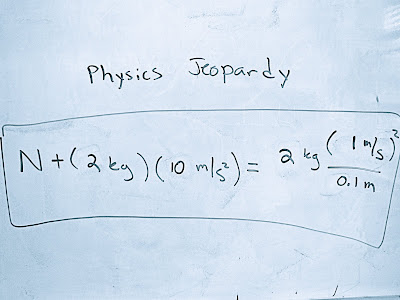 Physics Jeopardy
N + (2 kg)(10 m/s²) = 2 kg (1 m/s)² / 0.1 m